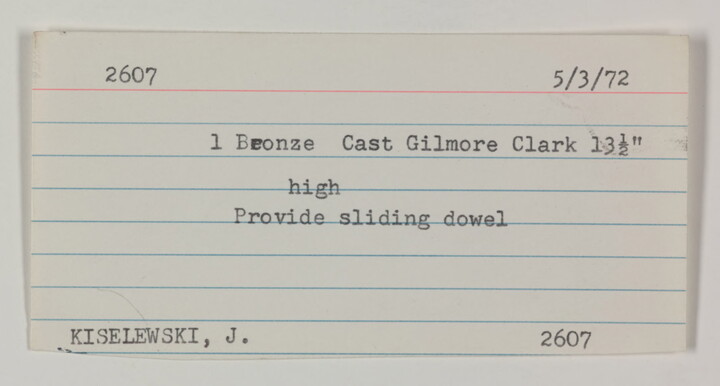 2607 5/3/72
1 Bronze Cast Gilmore Clark 13½"
high
Provide sliding dowel
KISELEWSKI, J. 2607